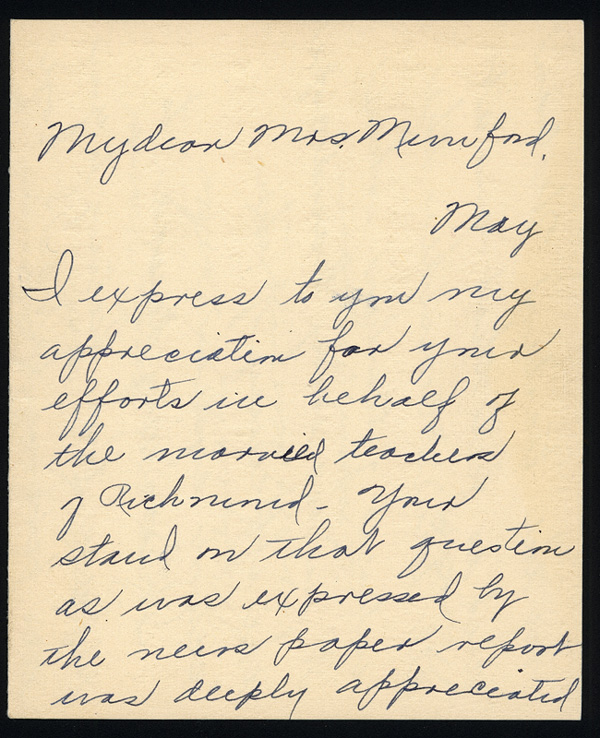 My dear Mrs. Munford,
May
I express to you my
appreciation for your
efforts in behalf of
the married teachers
of Richmond. Your
stand on that question
as was expressed by
the news paper report
was deeply appreciated